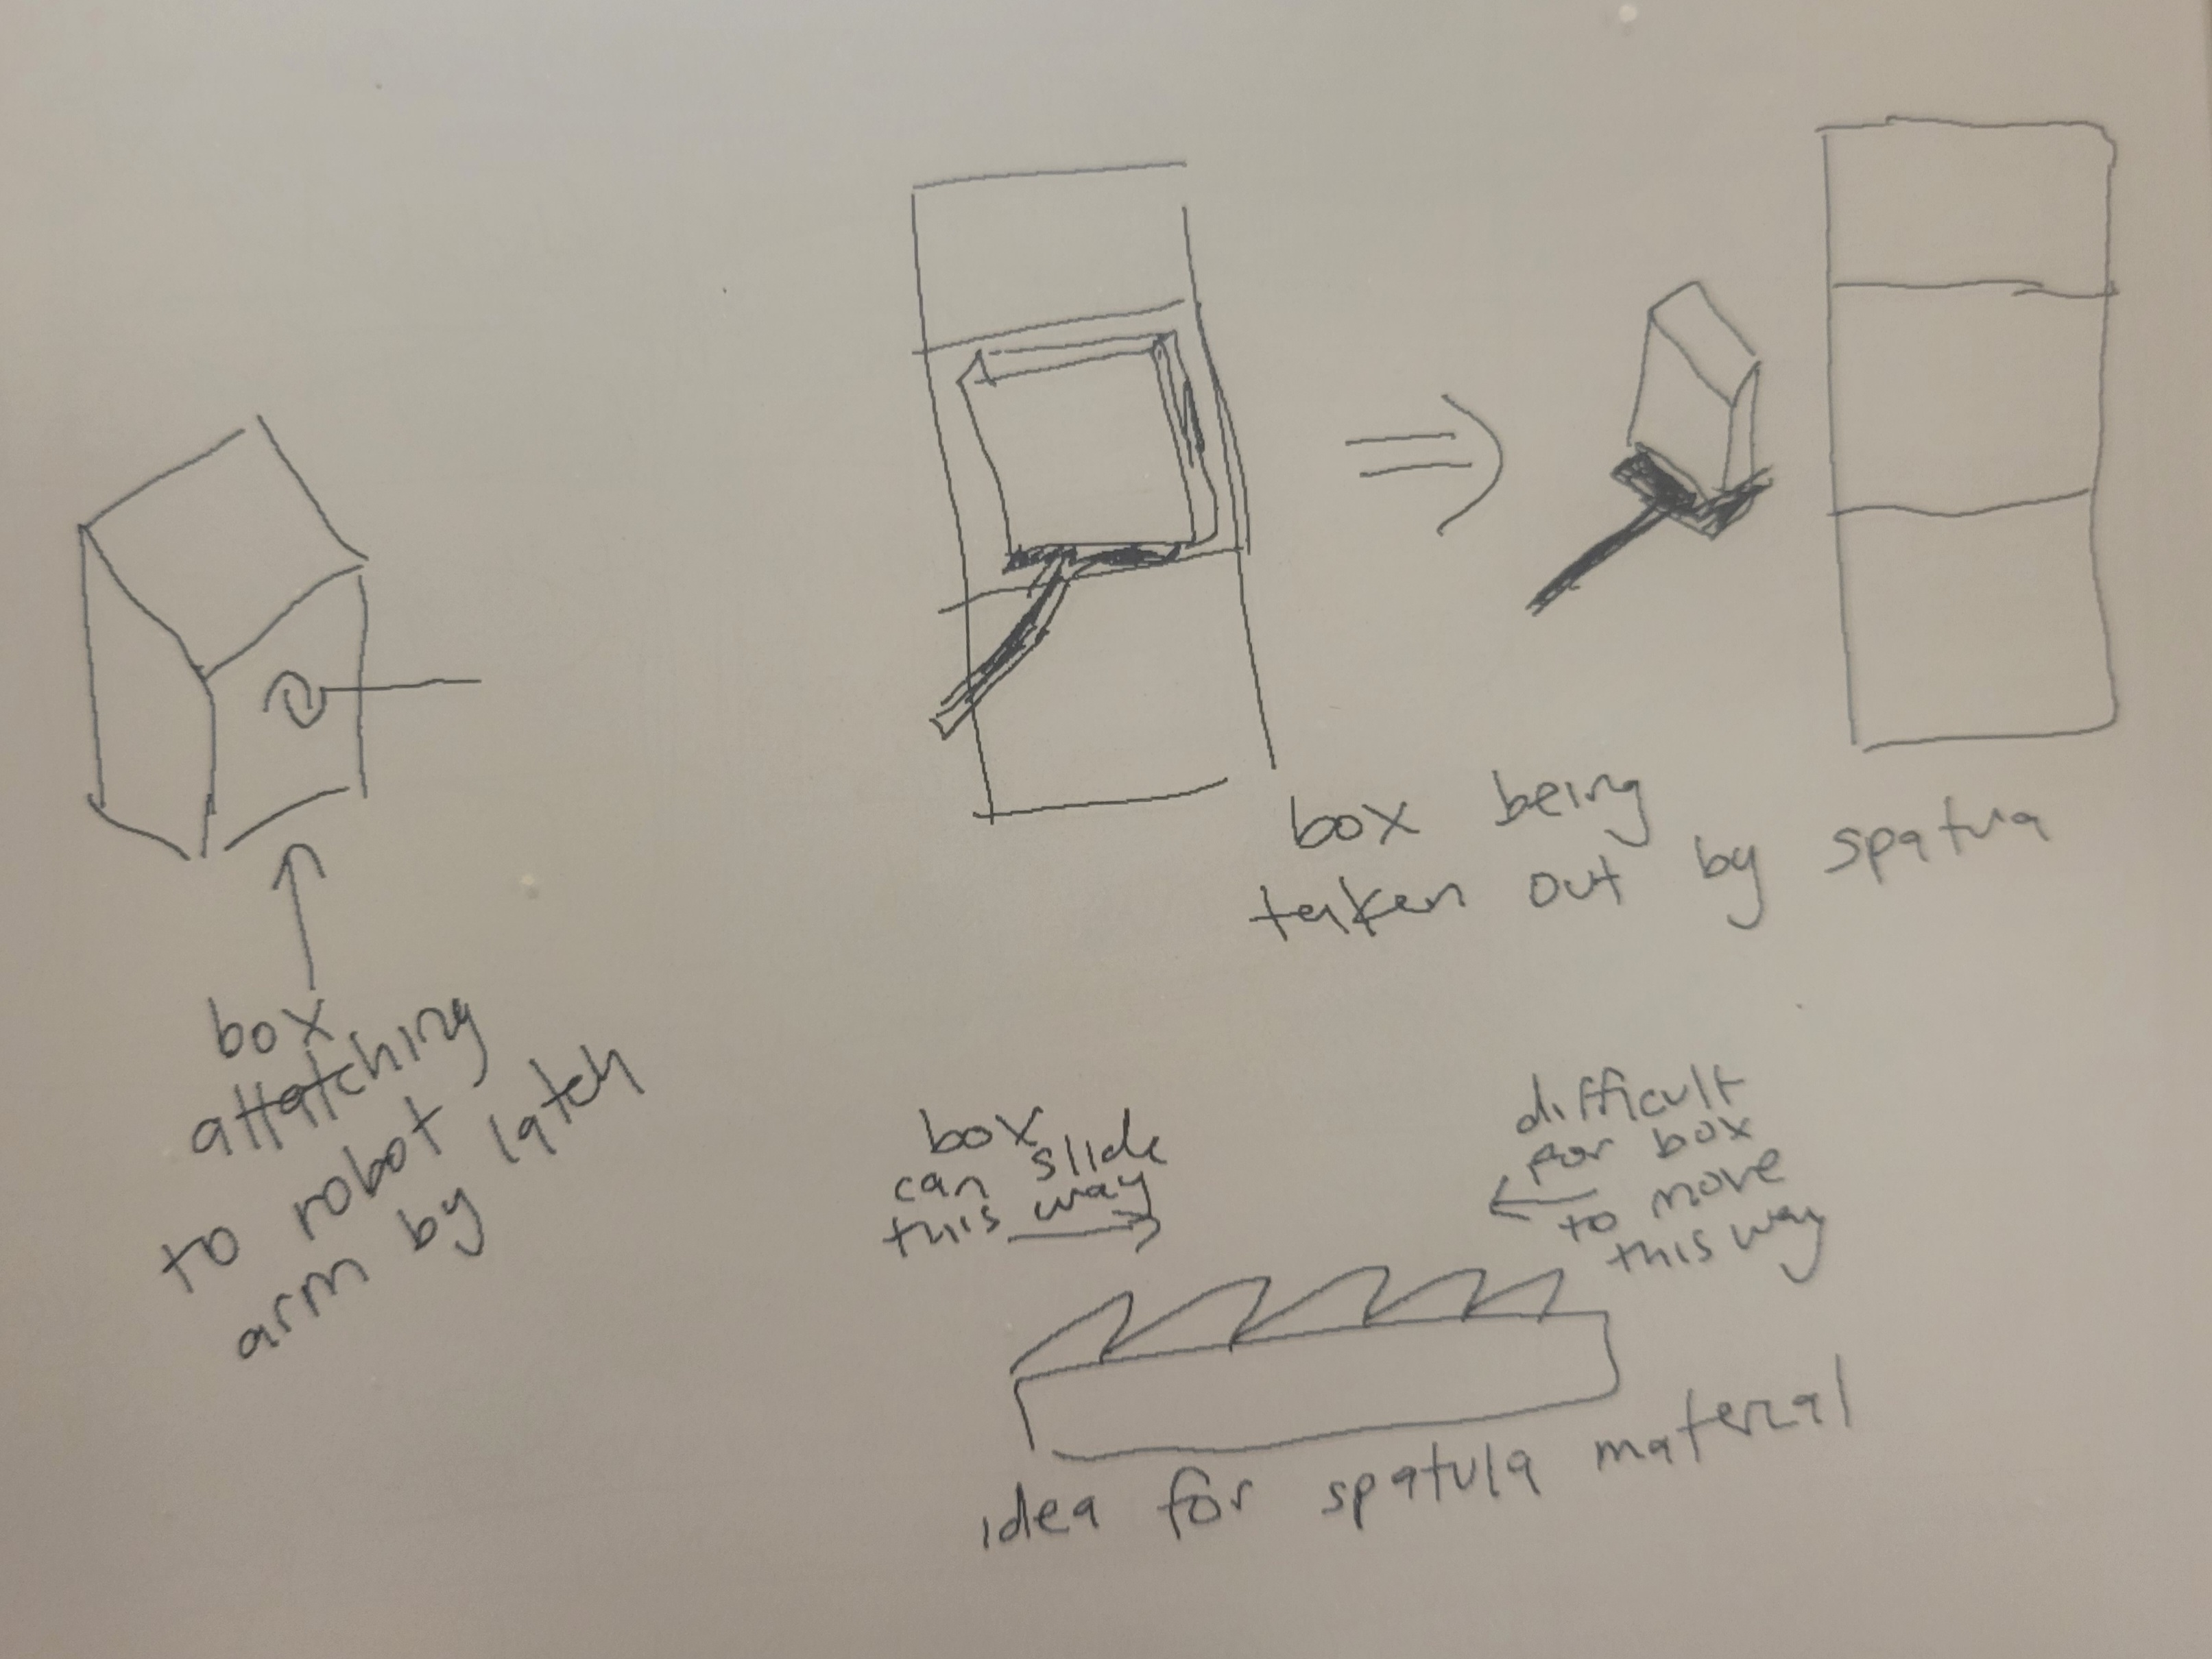 box
attatching
to robot
arm by latch
box being
taken out by spatua
box
can slide
this way
difficult
for box
to move
this way
idea for spatula material